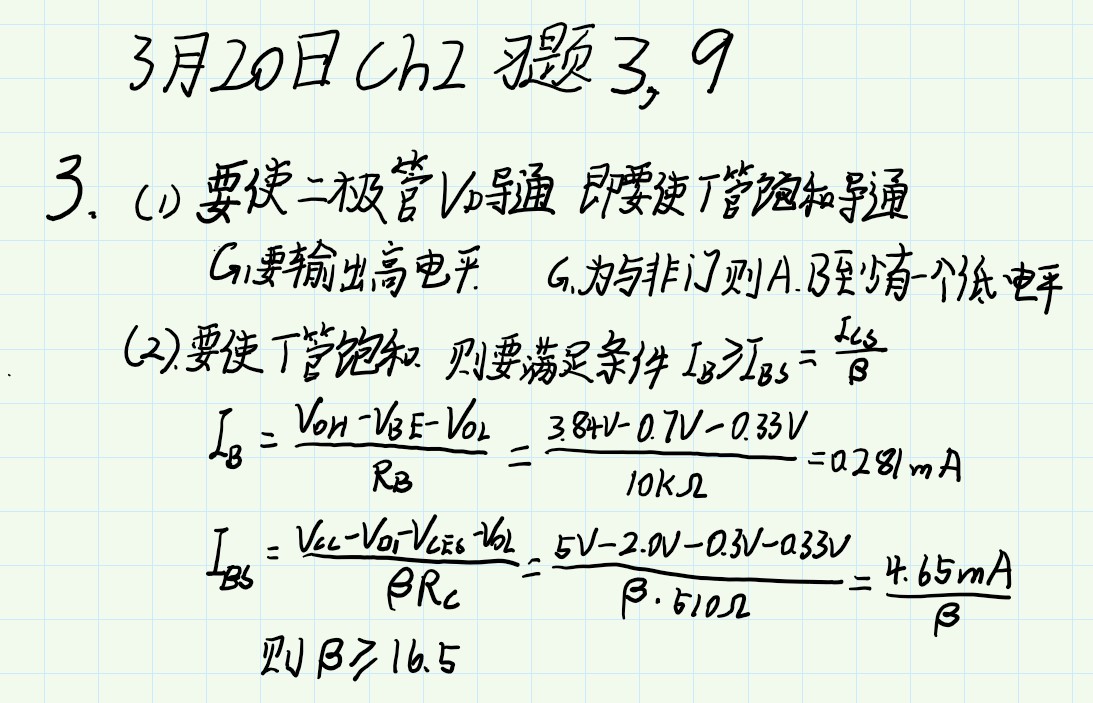 3月20日 Ch2 习题 3, 9
3. (1) 要使二极管VD导通 即要使T管饱和导通
G₁要输出高电平. G₁为与非门则A.B至少有一个低电平
(2).要使T管饱和. 则要满足条件 I_B≥I_BS = I_CS/β
I_B = (V_OH-V_BE-V_OL)/R_B = (3.84V-0.7V-0.33V)/10KΩ = 0.281mA
I_BS = (V_CC-V_D1-V_CES-V_OL)/βR_C = (5V-2.0V-0.3V-0.33V)/β·510Ω = 4.65mA/β
则 β≥16.5